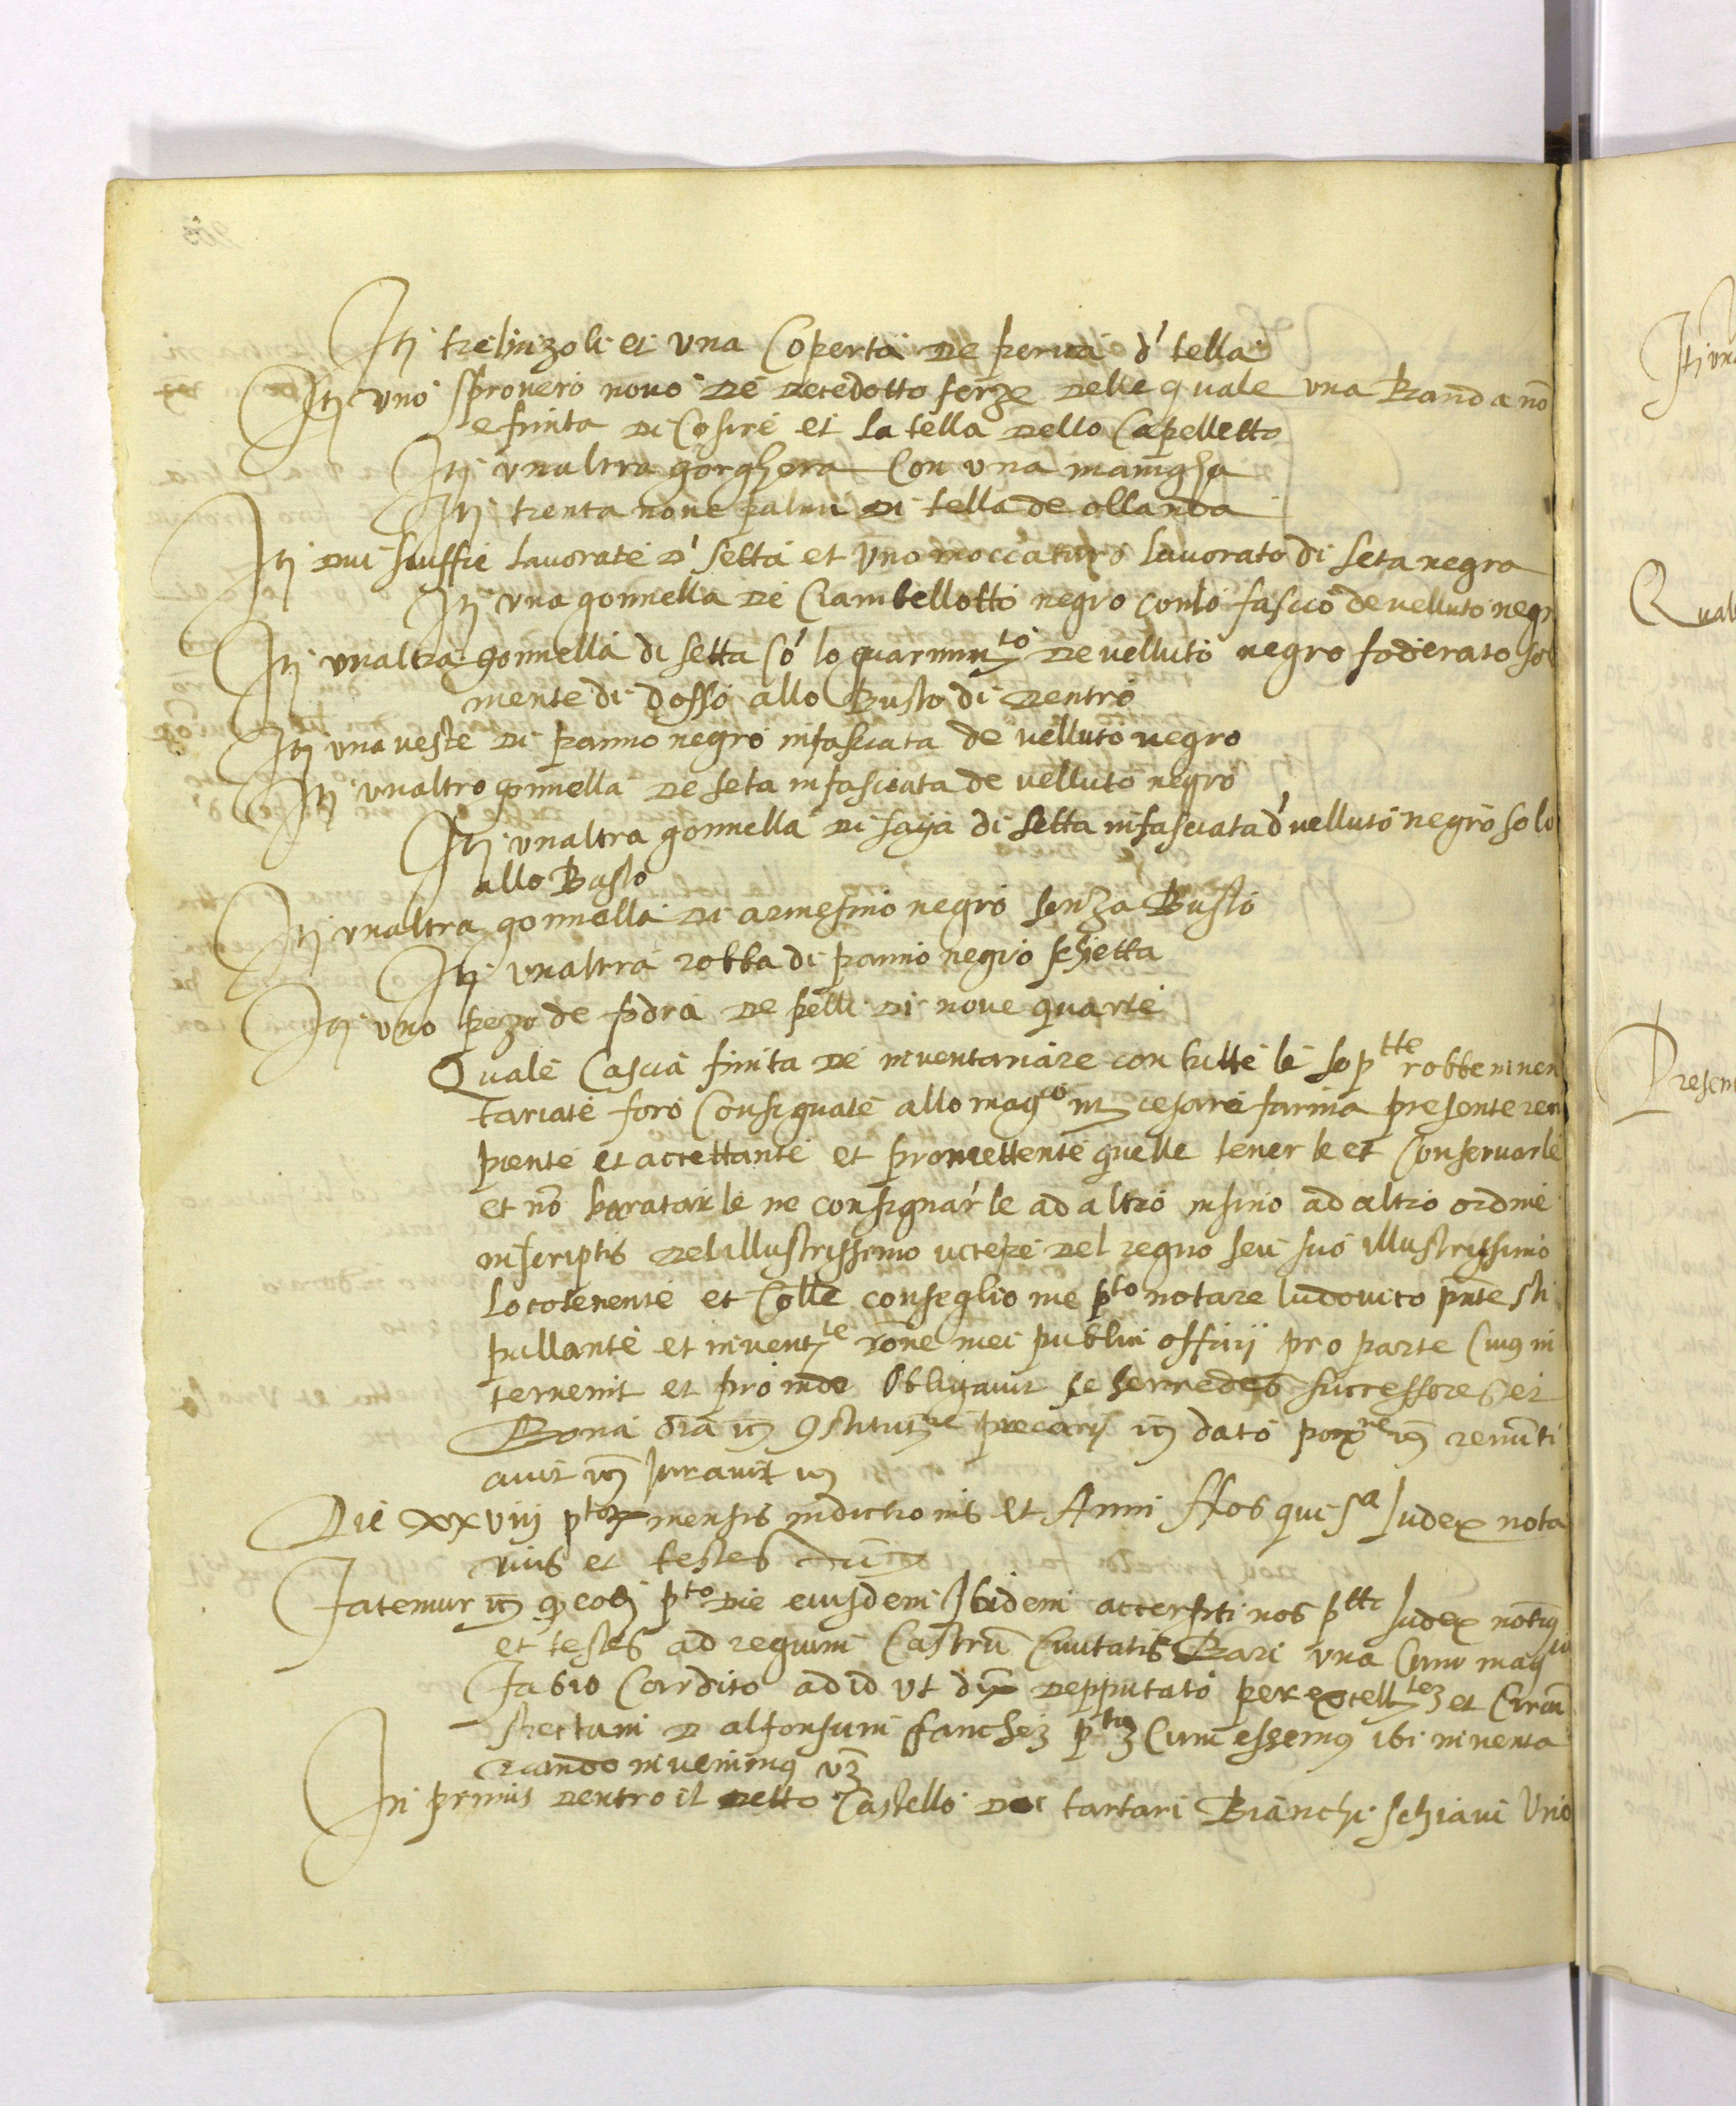 Itj tre linzoli et una Coperta de peruca d' tella
Itj uno sproverò novo de decedotto ferze delle quale una Banda nõ
e finita di Cosire et la tella dello Capelletto
Itj unaltra gorghera Con una manigha
Itj trenta nove palmi di tella de ollanda
Itj due scuffie lavorate d' setta et uno moccaturo lavorato di seta negra
Itj una gonnella de Ciambellotto negro con lo fascio de velluto negr
Itj unaltra gonnella di setta cõ lo guarnim^to de velluto negro foderato sol
mente di dosso allo Busto di dentro
Itj una veste di panno negro infasciata de velluto negro
Itj unaltro gonnella de seta infasciata de velluto negro
Itj unaltra gonnella di saya di setta infasciata d' velluto negro solo
allo Busto
Itj unaltra gonnella di armesino negro senza Busto
Itj unaltra robba di panno negro schietta
Itj uno pezo de fodra de pelli di nove quarte
Quale Cascia finita de inventariare con tutte le sop^tte robbe inven
tariate foro Consignate allo mag^co m cesare farina presente reci
piente et accettante et promettente quelle tenerle et Conservarle
et nõ baratarle ne consignarle ad altro insino ad altro ordine
inscriptis del illustrissimo vicere del regno seu suo illustrissimo
locotenente et Colle conseglio me p^to notare ludovico pnte sti
pullante et invent^te rõne mei publici officij pro parte Cuius in
tervenit et proinde Obligavit se herredes successores et
Bona oĩa &c constitut^ne precarij &c dato &c renunti
avit &c Juravit &c
Die xxviij p^torum mensis indictionis et Anni Nos qui s^a Judex nota
rius et testes
Fatemur &c quod eodẽ p^to die eiusdem Ibidem accersiti nos p^tti Judex notius
et testes ad regium Castrũ Civitatis Bari una Cum mag^co
Fabio Cardito ad id ut depputato per excell^tem et Circũ
spectum D alfonsum sanchez p^tum Cum essemus ibi inventa
riando invenimus vz
In primis dentro il detto Castello doi tartari Bianchi schiavi Uno